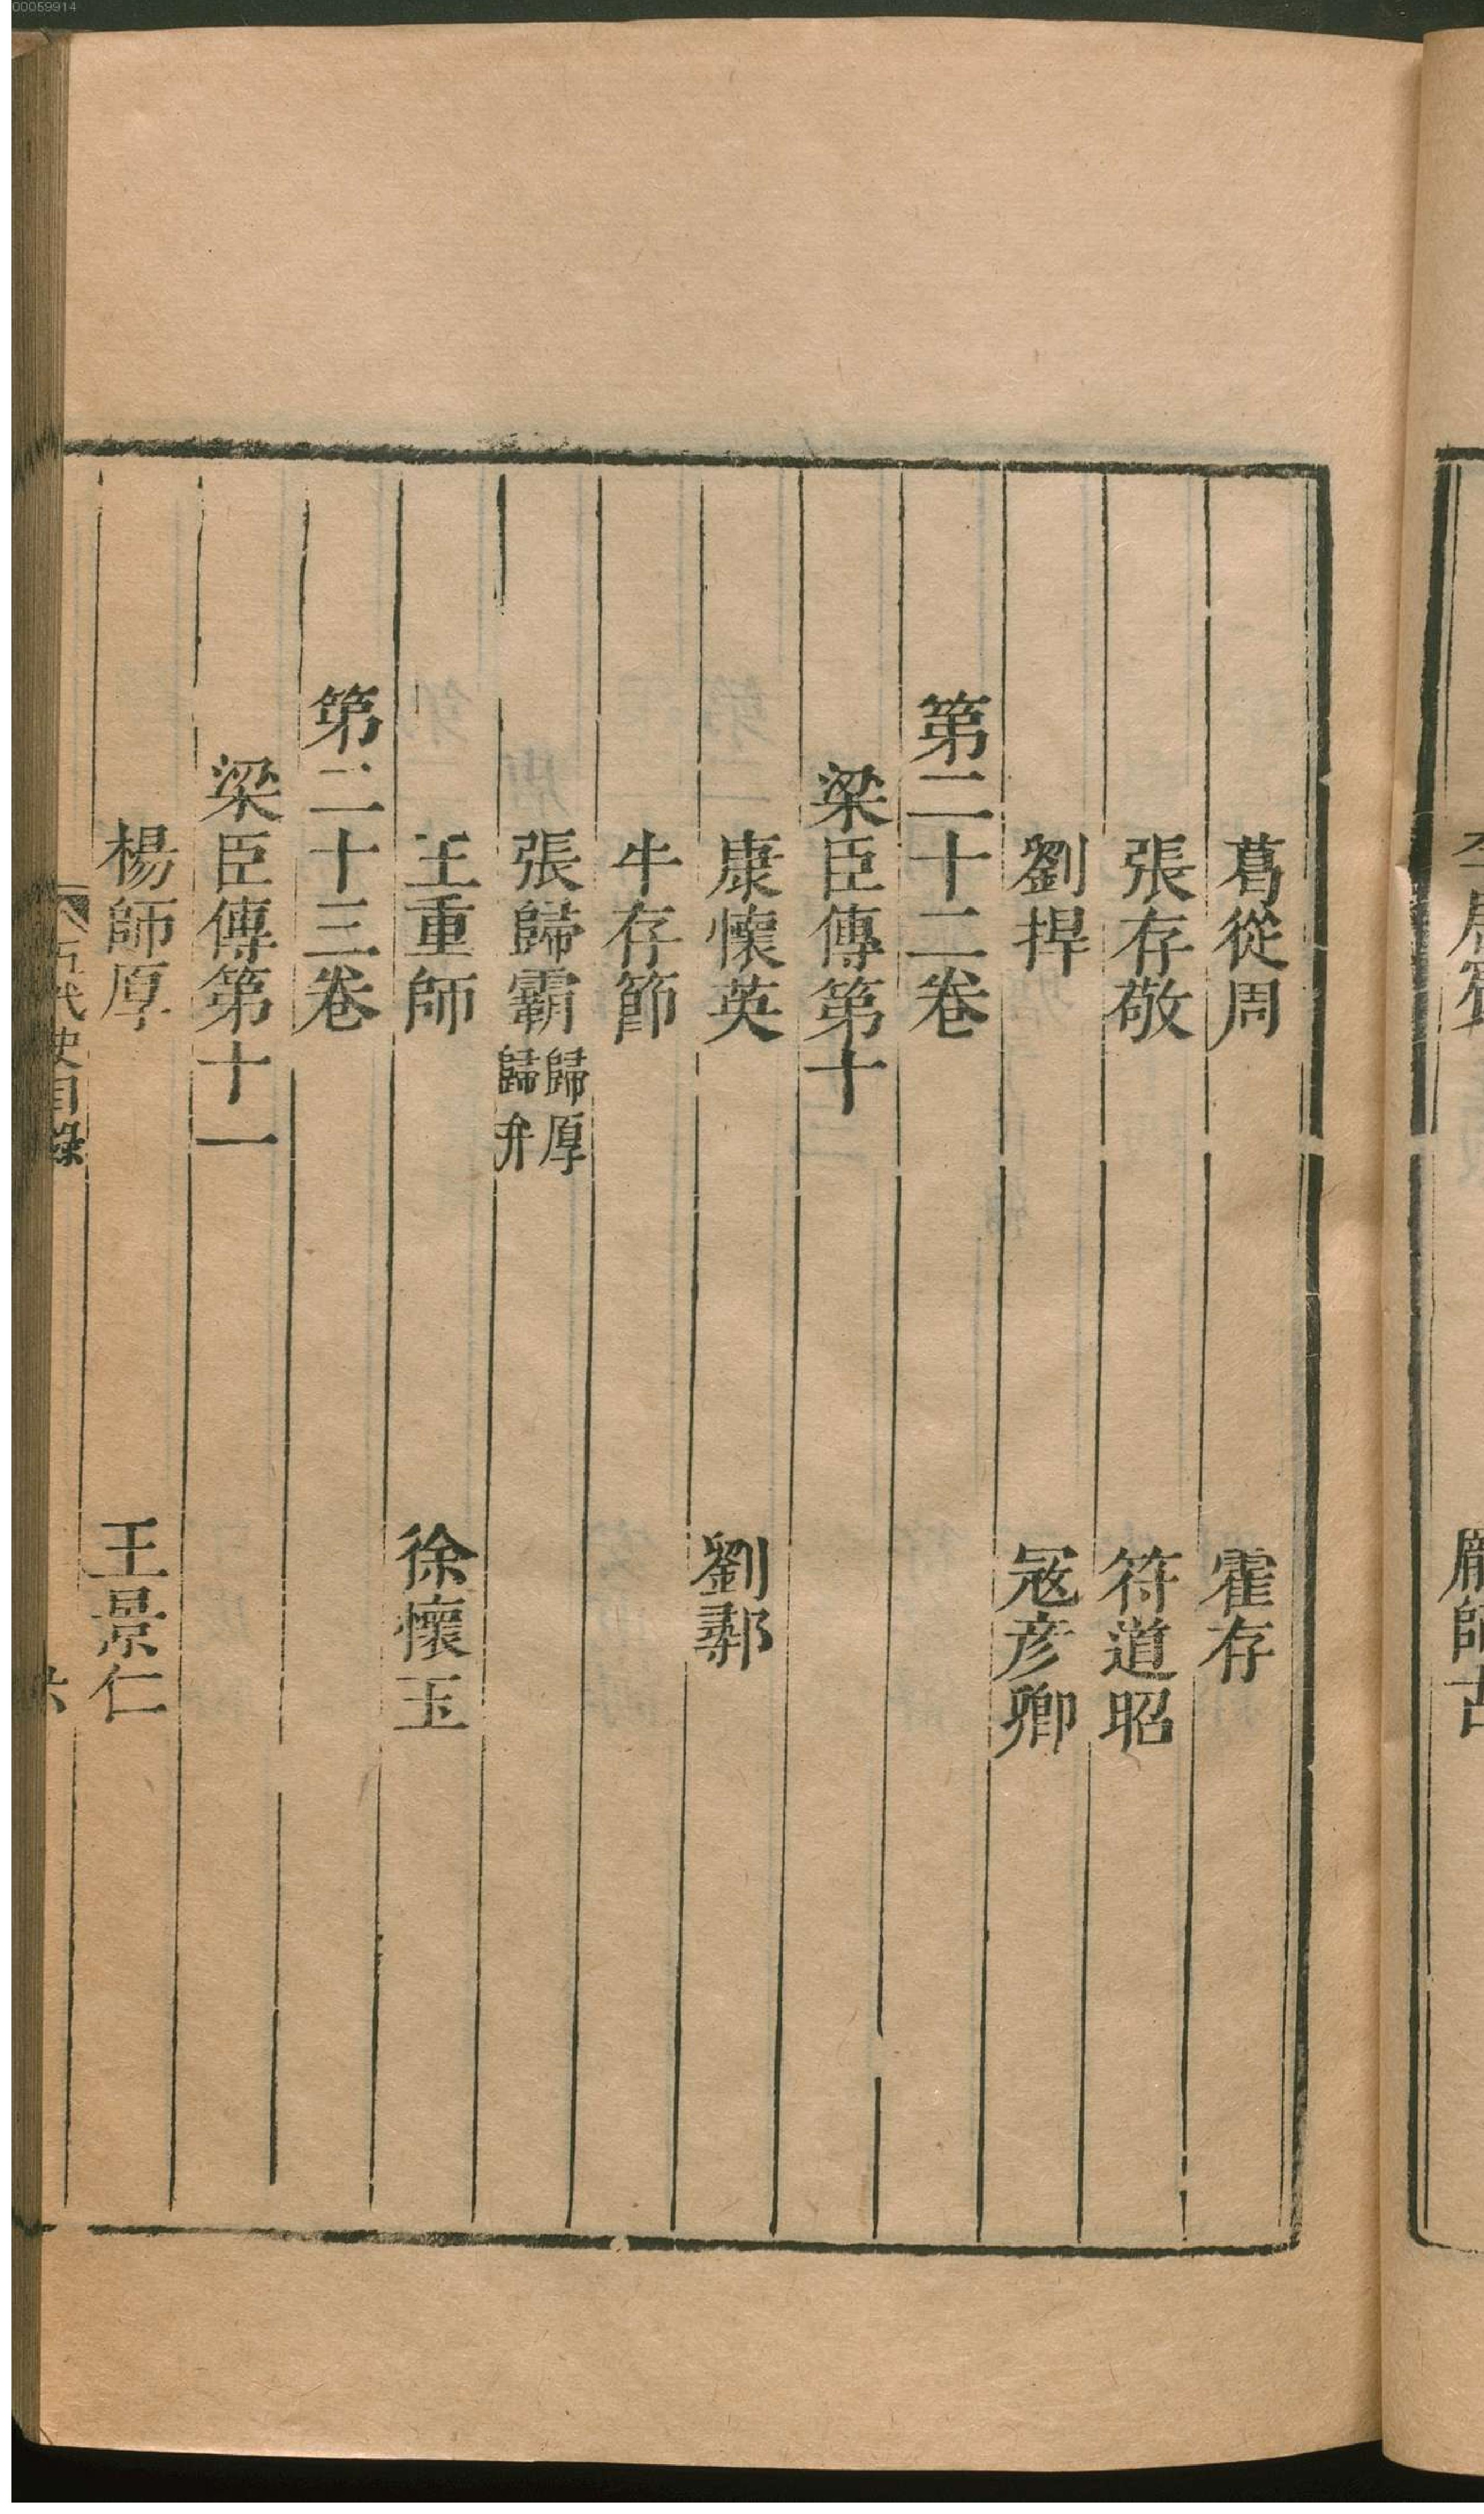 00059914
師古
葛從周　霍存
張存敬　符道昭
劉捍　冦彦卿
第二十二卷
梁臣傳第十
康懷英　劉鄩
牛存節
張歸霸 歸厚 歸弁
王重師　徐懷玉
第二十三卷
梁臣傳第十一
楊師厚　王景仁
五代史目錄　六